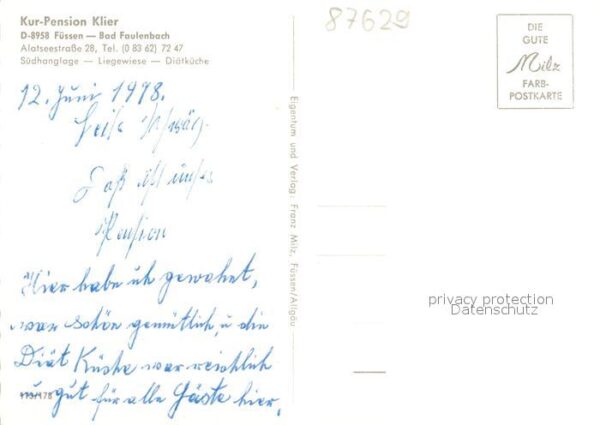 Kur-Pension Klier
D-8958 Füssen — Bad Faulenbach
Alatseestraße 28, Tel. (0 83 62) 72 47
Südhanglage — Liegewiese — Diätküche
12. Juni 1998.
Pension
Hier habe ich gewohnt,
war schön gemütlich, u die
Diät Küche war reichlich
u gut für alle Gäste hier,
173/178
Eigentum und Verlag: Franz Milz, Füssen/Allgäu
87629
DIE
GUTE
Milz
FARB-
POSTKARTE
privacy protection
Datenschutz